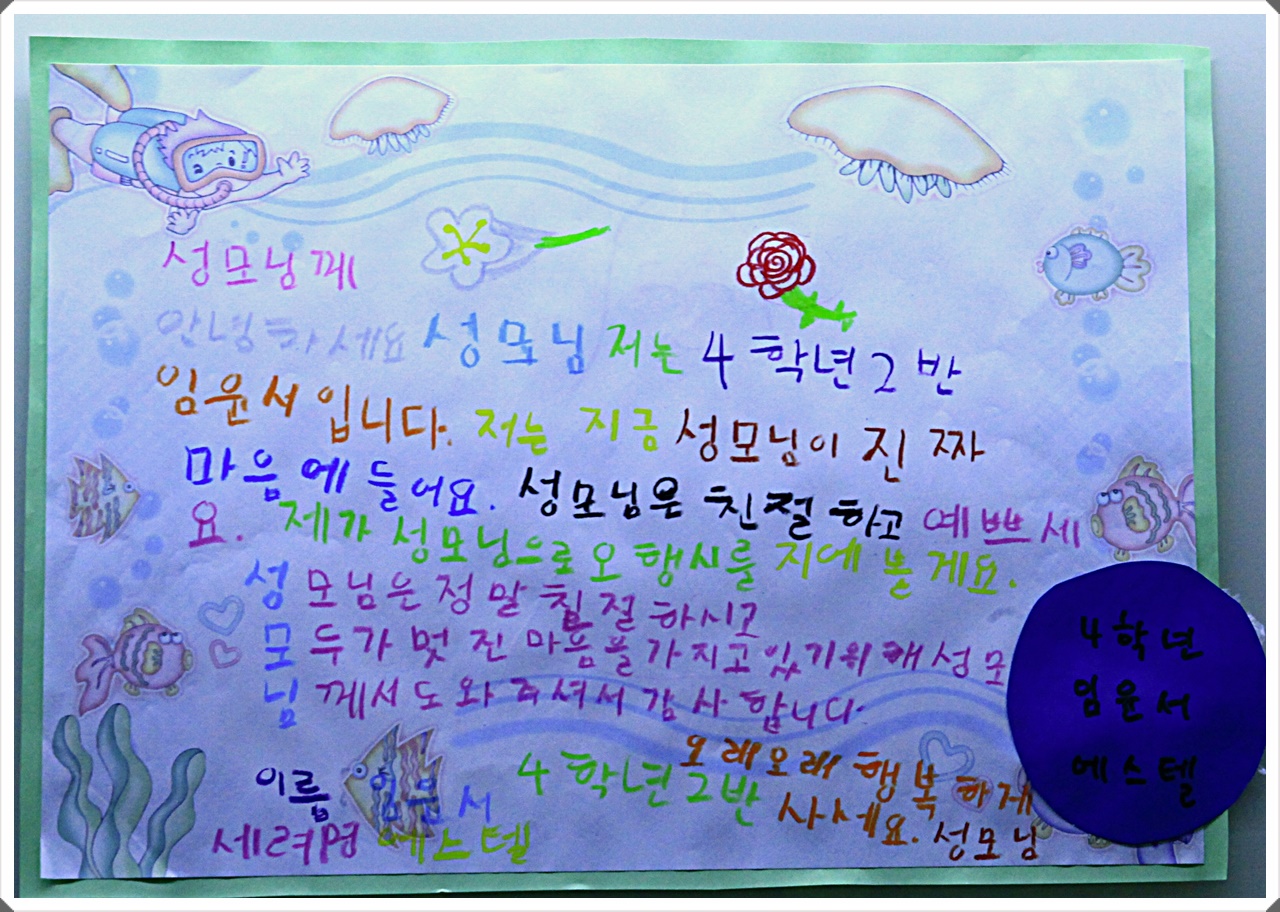 성모님께
안녕하세요 성모님 저는 4학년 2반
임윤서 입니다. 저는 지금 성모님이 진짜
마음에 들어요. 성모님은 친절하고 예쁘세
요. 제가 성모님으로 오행시를 지에 볼게요.
성모님은 정말 칠절하시고
모두가 멋진 마음을 가지고 있기위해 성모
님께서 도와주셔서 감사합니다
오래오래 행복하게
사세요. 성모님
이름 임윤서 4학년 2반
세려명 에스텔
4학년
임윤서
에스텔